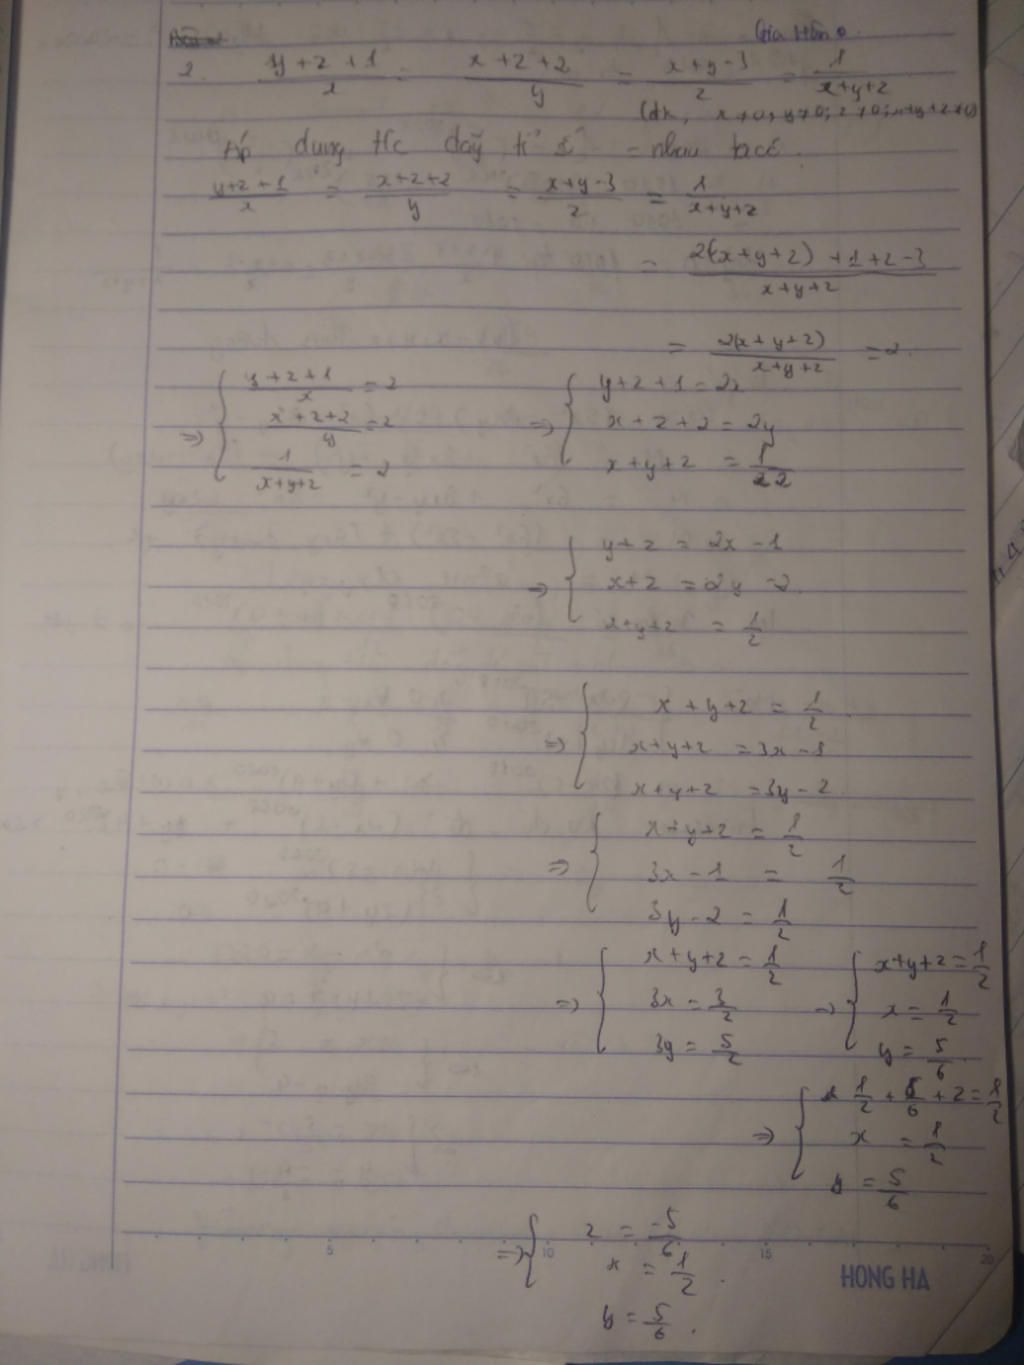 Gia Hân
2. \frac{y+z+1}{x} = \frac{x+z+2}{y} = \frac{x+y-3}{z} = \frac{1}{x+y+z}
(đk, x≠0, y≠0; z≠0; x+y+z≠0)
Áp dụng t/c dãy tỉ số = nhau ta có.
\frac{y+z+1}{x} = \frac{x+z+2}{y} = \frac{x+y-3}{z} = \frac{1}{x+y+z}
= \frac{2(x+y+z)+1+2-3}{x+y+z}
= \frac{2(x+y+z)}{x+y+z} = 2.
⇒ { \frac{y+z+1}{x} = 2 ⇒ { y+z+1 = 2x
\frac{x+z+2}{y} = 2 x+z+2 = 2y
\frac{1}{x+y+z} = 2 x+y+z = \frac{1}{2}
⇒ { y+z = 2x-1
x+z = 2y-2
x+y+z = \frac{1}{2}
⇒ { x+y+z = \frac{1}{2}
x+y+z = 3x-1
x+y+z = 3y-2
⇒ { x+y+z = \frac{1}{2}
3x-1 = \frac{1}{2}
3y-2 = \frac{1}{2}
⇒ { x+y+z = \frac{1}{2} ⇒ { x+y+z = \frac{1}{2}
3x = \frac{3}{2} x = \frac{1}{2}
3y = \frac{5}{2} y = \frac{5}{6}
⇒ { \frac{1}{2} + \frac{5}{6} + z = \frac{1}{2}
x = \frac{1}{2}
y = \frac{5}{6}
⇒ { z = \frac{-5}{6}
x = \frac{1}{2}.
y = \frac{5}{6}.
5 10 15 20
HONG HA